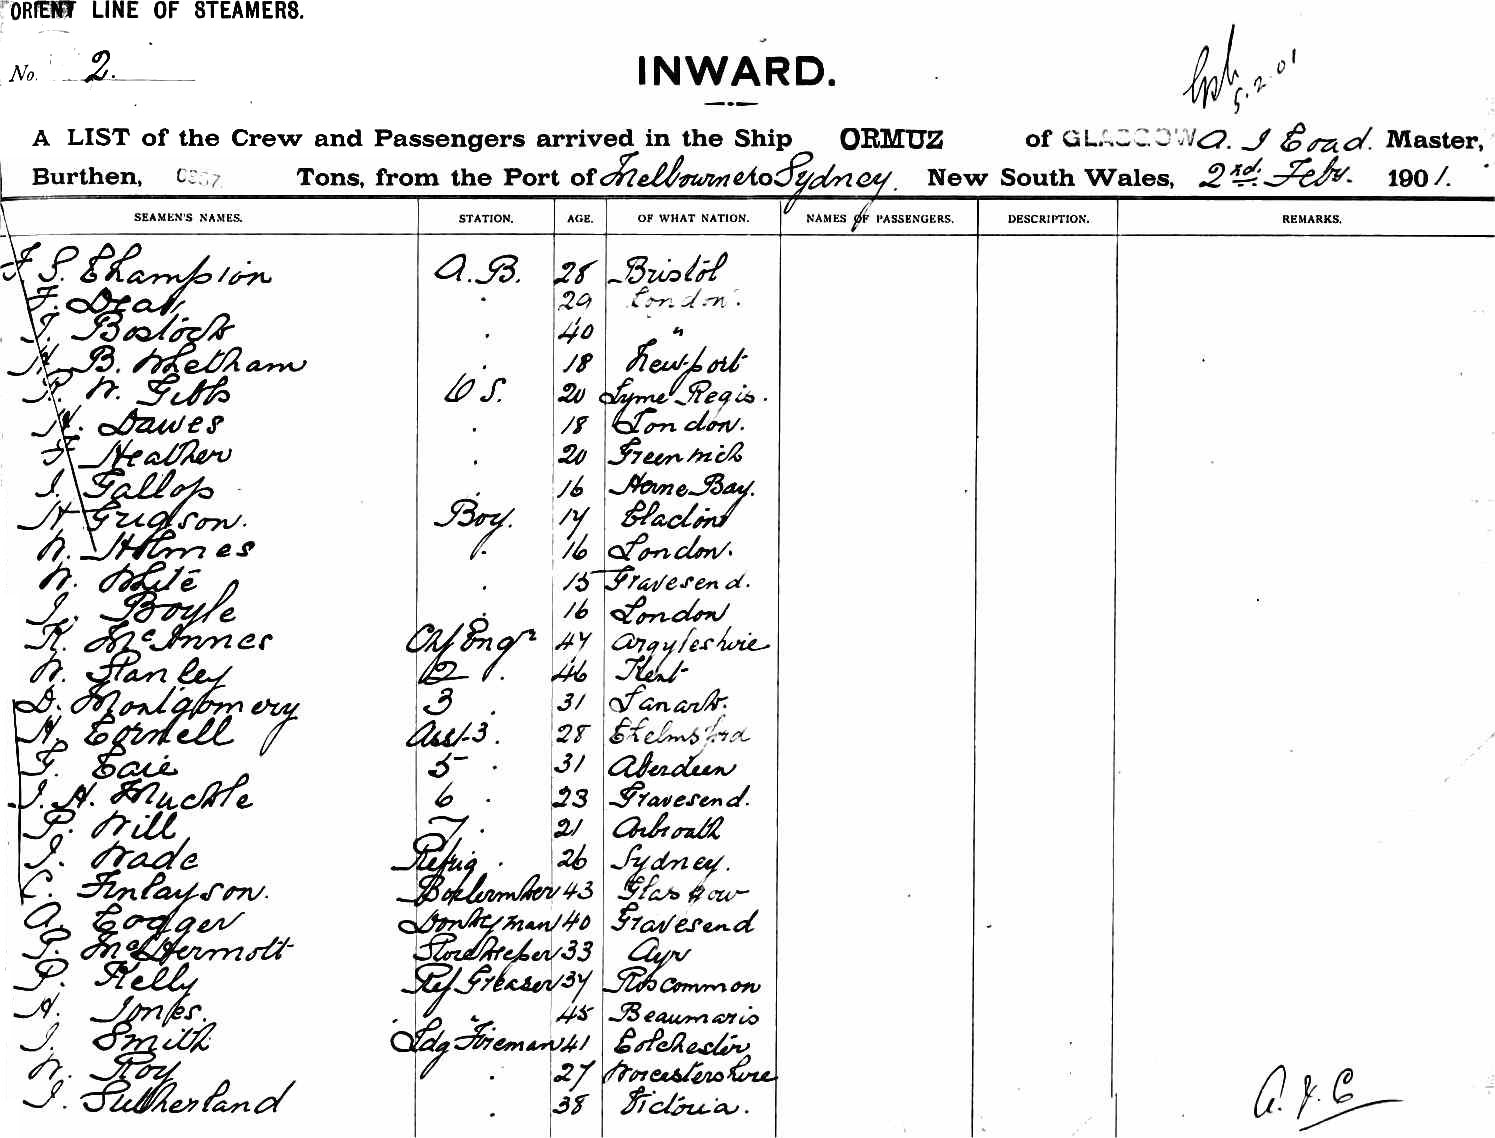 ORIENT LINE OF STEAMERS.
No. 2.
INWARD.
5.2.01
A LIST of the Crew and Passengers arrived in the Ship ORMUZ of GLASGOW A. J Coad. Master,
Burthen, Tons, from the Port of Melbourne to Sydney. New South Wales, 2nd Feby. 1901.
SEAMEN'S NAMES. STATION. AGE. OF WHAT NATION. NAMES OF PASSENGERS. DESCRIPTION. REMARKS.
F S. Champion A.B. 28 Bristol
F. Deal . 29 London.
J. Bostock . 40 "
H. B. Metham . 18 Newport
P. W. Gibb O S. 20 Lyme Regis.
H. Dawes . 18 London.
F Heather . 20 Greenwich
J. Gallop . 16 Herne Bay.
H Grigson. Boy. 17 Clacton
W. Holmes . 16 London.
W. White . 15 Gravesend.
J. Boyle . 16 London
R. McInnes Ch Engr 47 Argyleshire
W. Stanley 2 . 46 Kent
D. Montgomery 3 . 31 Lanark.
H. Cornell Asst 3. 28 Chelmsford
F. Caie 5 . 31 Aberdeen
J. H. Muckle 6 . 23 Gravesend.
P. Will 7 . 21 Arbroath
J. Wade Refrig . 26 Sydney.
C. Finlayson. Boilermaker 43 Glasgow
A. Codger Donkeyman 40 Gravesend
P. McDermott Storekeeper 33 Ayr
P. Kelly Ref Greaser 34 Roscommon
H. Jones. . " 45 Beaumaris
J. Smith Ldg Fireman 41 Colchester
W. Roy . 27 Worcestershire
J. Sutherland . 38 Victoria.
A. J. C